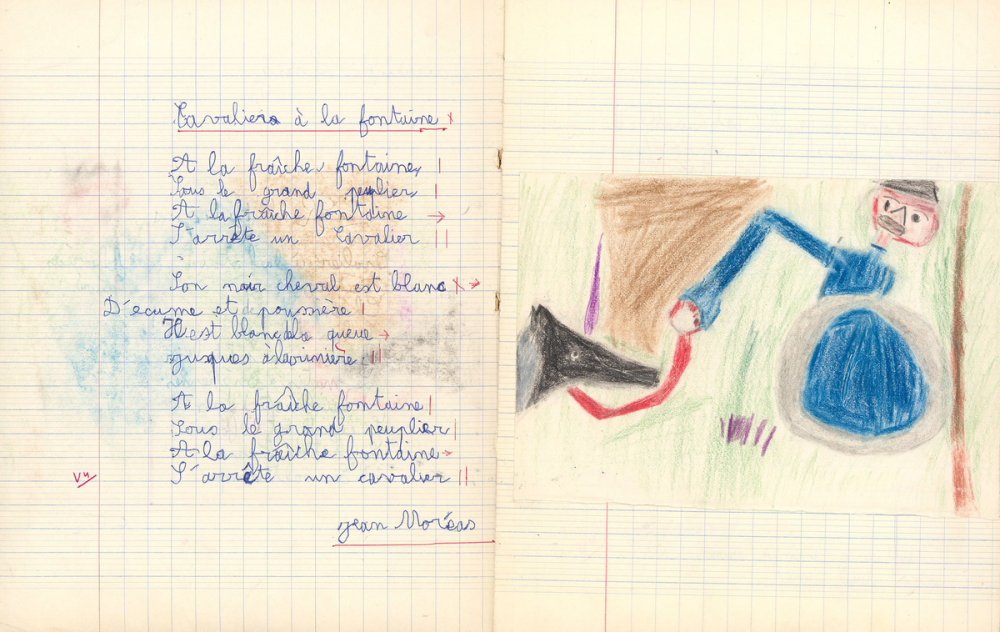 Cavaliers à la fontaine
A la fraîche fontaine,
Sous le grand peuplier,
A la fraîche fontaine
S'arrête un Cavalier
Son noir cheval est blanc
D'écume et de poussière
Il est blanc de la queue
Jusques à la crinière.
A la fraîche fontaine
Sous le grand peuplier
A la fraîche fontaine
S'arrête un cavalier
Vu
Jean Moréas